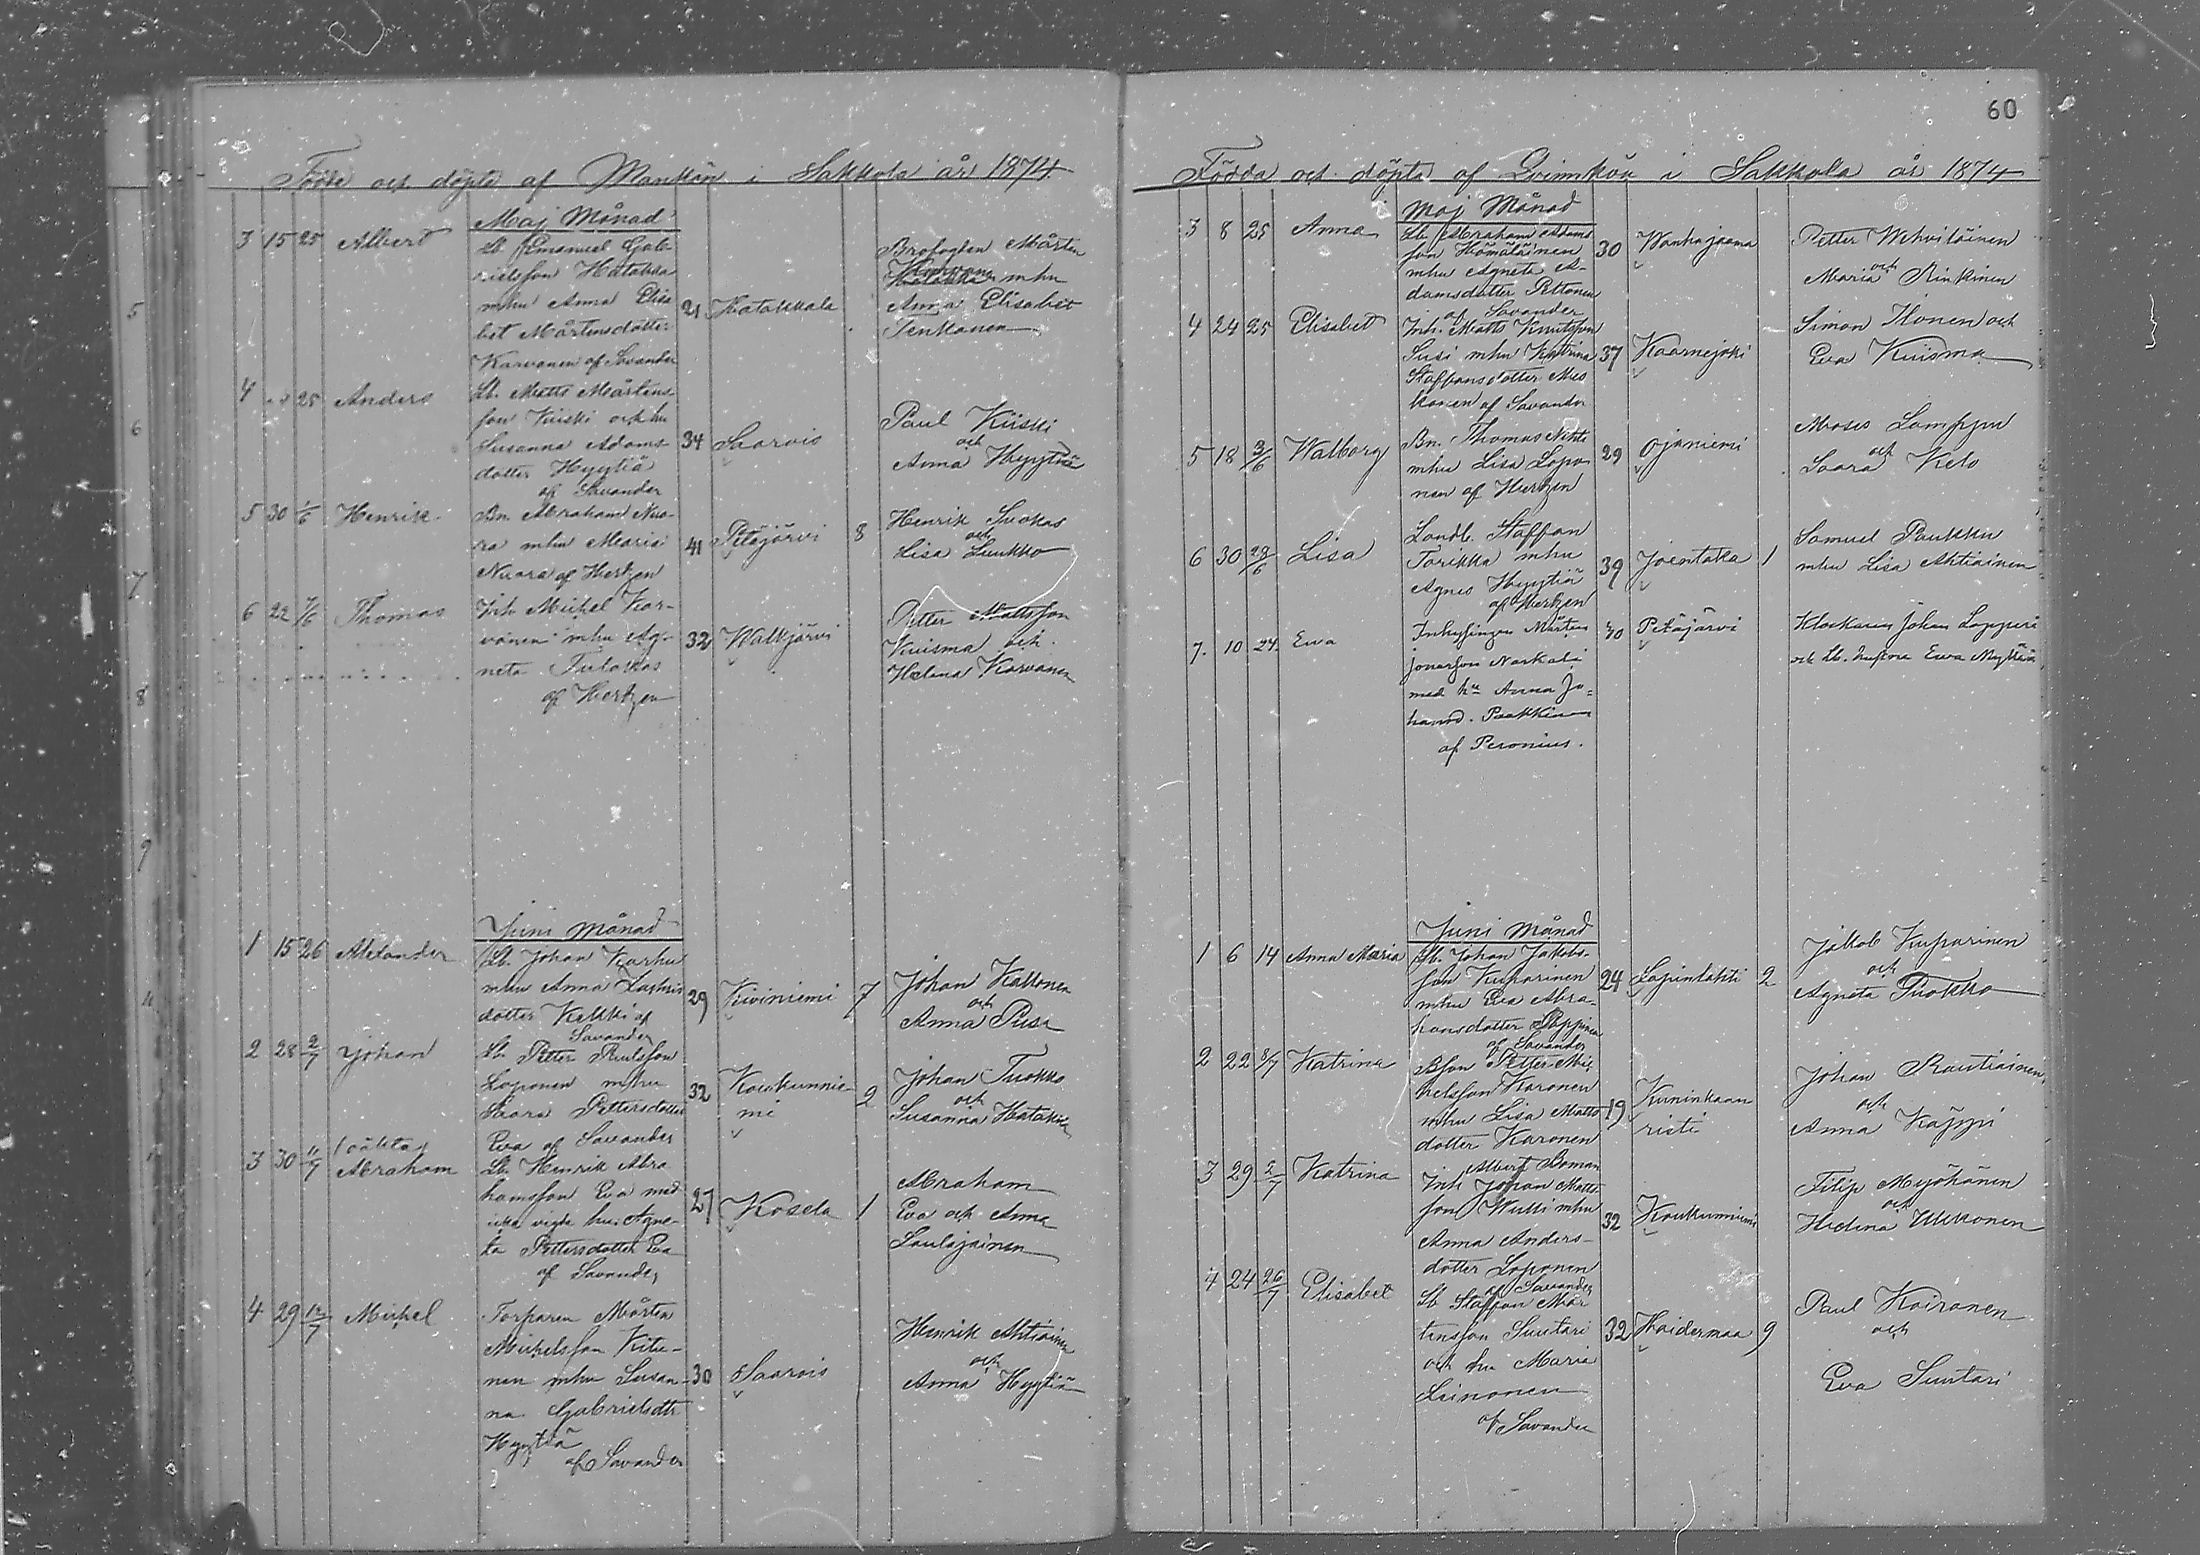 Födde och döpte af Mankön i Sakkola år 1874
Maj Månad
3 15 25 Albert
Lb. Emanuel Gab-
rielsson Hatakka
mhu Anna Elisa
bet Mårtensdotter
Karvonen af Savander
21 Hatakkala
Brofogden Mårten
mhu
Anna Elisabet
Tenkanen
4 25 Anders
Lb. Matts Mårtens
son Kiiski och hu
Susanna Adams
dotter Hyytiä
af Savander
34 Saarois
Paul Kiiski
och
Anna Hyytiä
5 30 1/6 Henrik
Bn Abraham Nuo-
ra mhu Maria
Nuora af Hertzen
41 Petäjärvi 8
Henrik Suokas
och
Lisa Luukko
6 22 7/6 Thomas
Inh Michel Kar-
vonen mhu Ag-
neta Tulokas
af Hertzen
32 Walkjärvi
Petter Mattsson
Kuisma och
Helena Karvanen
Juni Månad
1 15 26 Alexander
Lb. Johan Karhu
mhu Anna Zachris
dotter Kekki af
Savander
29 Kiviniemi 7
Johan Kakkonen
och
Anna Pusa
2 28 2/7 Johan
Lb. Petter Paulsson
Loponen mhu
Saara Pettersdotter
Eva af Savander
32 Koukunnie
mi 2
Johan Tuokko
och
Susanna Hatakka
3 30 11/7 (oäkta)
Abraham
Lb. Henrik Abra
hamsson Eva med
icke vigde hu: Agne-
ta Pettersdotter Eva
af Savander
27 Kosela 1
Abraham
Eva och Anna
Laulajainen
4 29 12/7 Michel
Torparen Mårten
Michelsson Kitu-
nen mhu Susan-
na Gabrielsdtr
Hyytiä
af Savander
30 Saarois
Henrik Ahtiainen
och
Anna Hyytiä
60
Födda och döpta af Qvinnkön i Sakkola år 1874
Maj Månad
3 8 25 Anna
Lb. Abraham Adams
son Hämäläinen
mhu Agneta A-
damsdotter Pettonen
af Savander
30 Wanhajaama
Petter Wehviläinen
och
Maria Rinkinen
4 24 25 Elisabet
Inh. Matts Knutsson
Susi mhu Katrina
Staffansdotter Mus
konen af Savander
37 Kaarnejoki
Simon Ikonen och
Eva Kuisma
5 18 3/6 Walborg
Bn. Thomas Nihti
mhu Lisa Lopo-
nen af Hertzen
29 Ojaniemi
Moses Lamppu
och
Saara Kelo
6 30 28/6 Lisa
Landb. Staffan
Torikka mhu
Agnes Hyytiä
af Hertzen
39 Joentaka 1
Samuel Paukku
mhu Lisa Ahtiainen
7. 10 24. Ewa
Inhysingen Mårten
Jonasson Naskali
med hu Anna Jo=
hansd. Paakkinen
af Peronius.
40 Petäjärvi
Klockaren Johan Lopperi
och Lb. hustru Ewa
Juni Månad
1 6 14 Anna Maria
Lb. Johan Jakobs-
son Kuparinen
mhu Eva Abra-
hamsdotter Poppinen
af Savander
24 Lapinlahti 2
Jakob Kuparinen
och
Agneta Tuokko
2 22 8/7 Katrina
Bson Petter Mi-
chelsson Karonen
mhu Lisa Matts
dotter Karonen
Albert Boman
19 Kuninkaan
risti
Johan Rautiainen
och
Anna Käppi
3 29 2/7 Katrina
Inh Johan Matts
son Wukki mhu
Anna Anders-
dotter Loponen
af Savander
32 Koukunniemi
Filip Myöhänen
och
Helena Ukkonen
4 24 26/7 Elisabet
Lb. Staffan Mår
tensson Suutari
och hu Maria
Leinonen
af Savander
32 Haidermaa 9
Paul Koironen
och
Eva Suutari